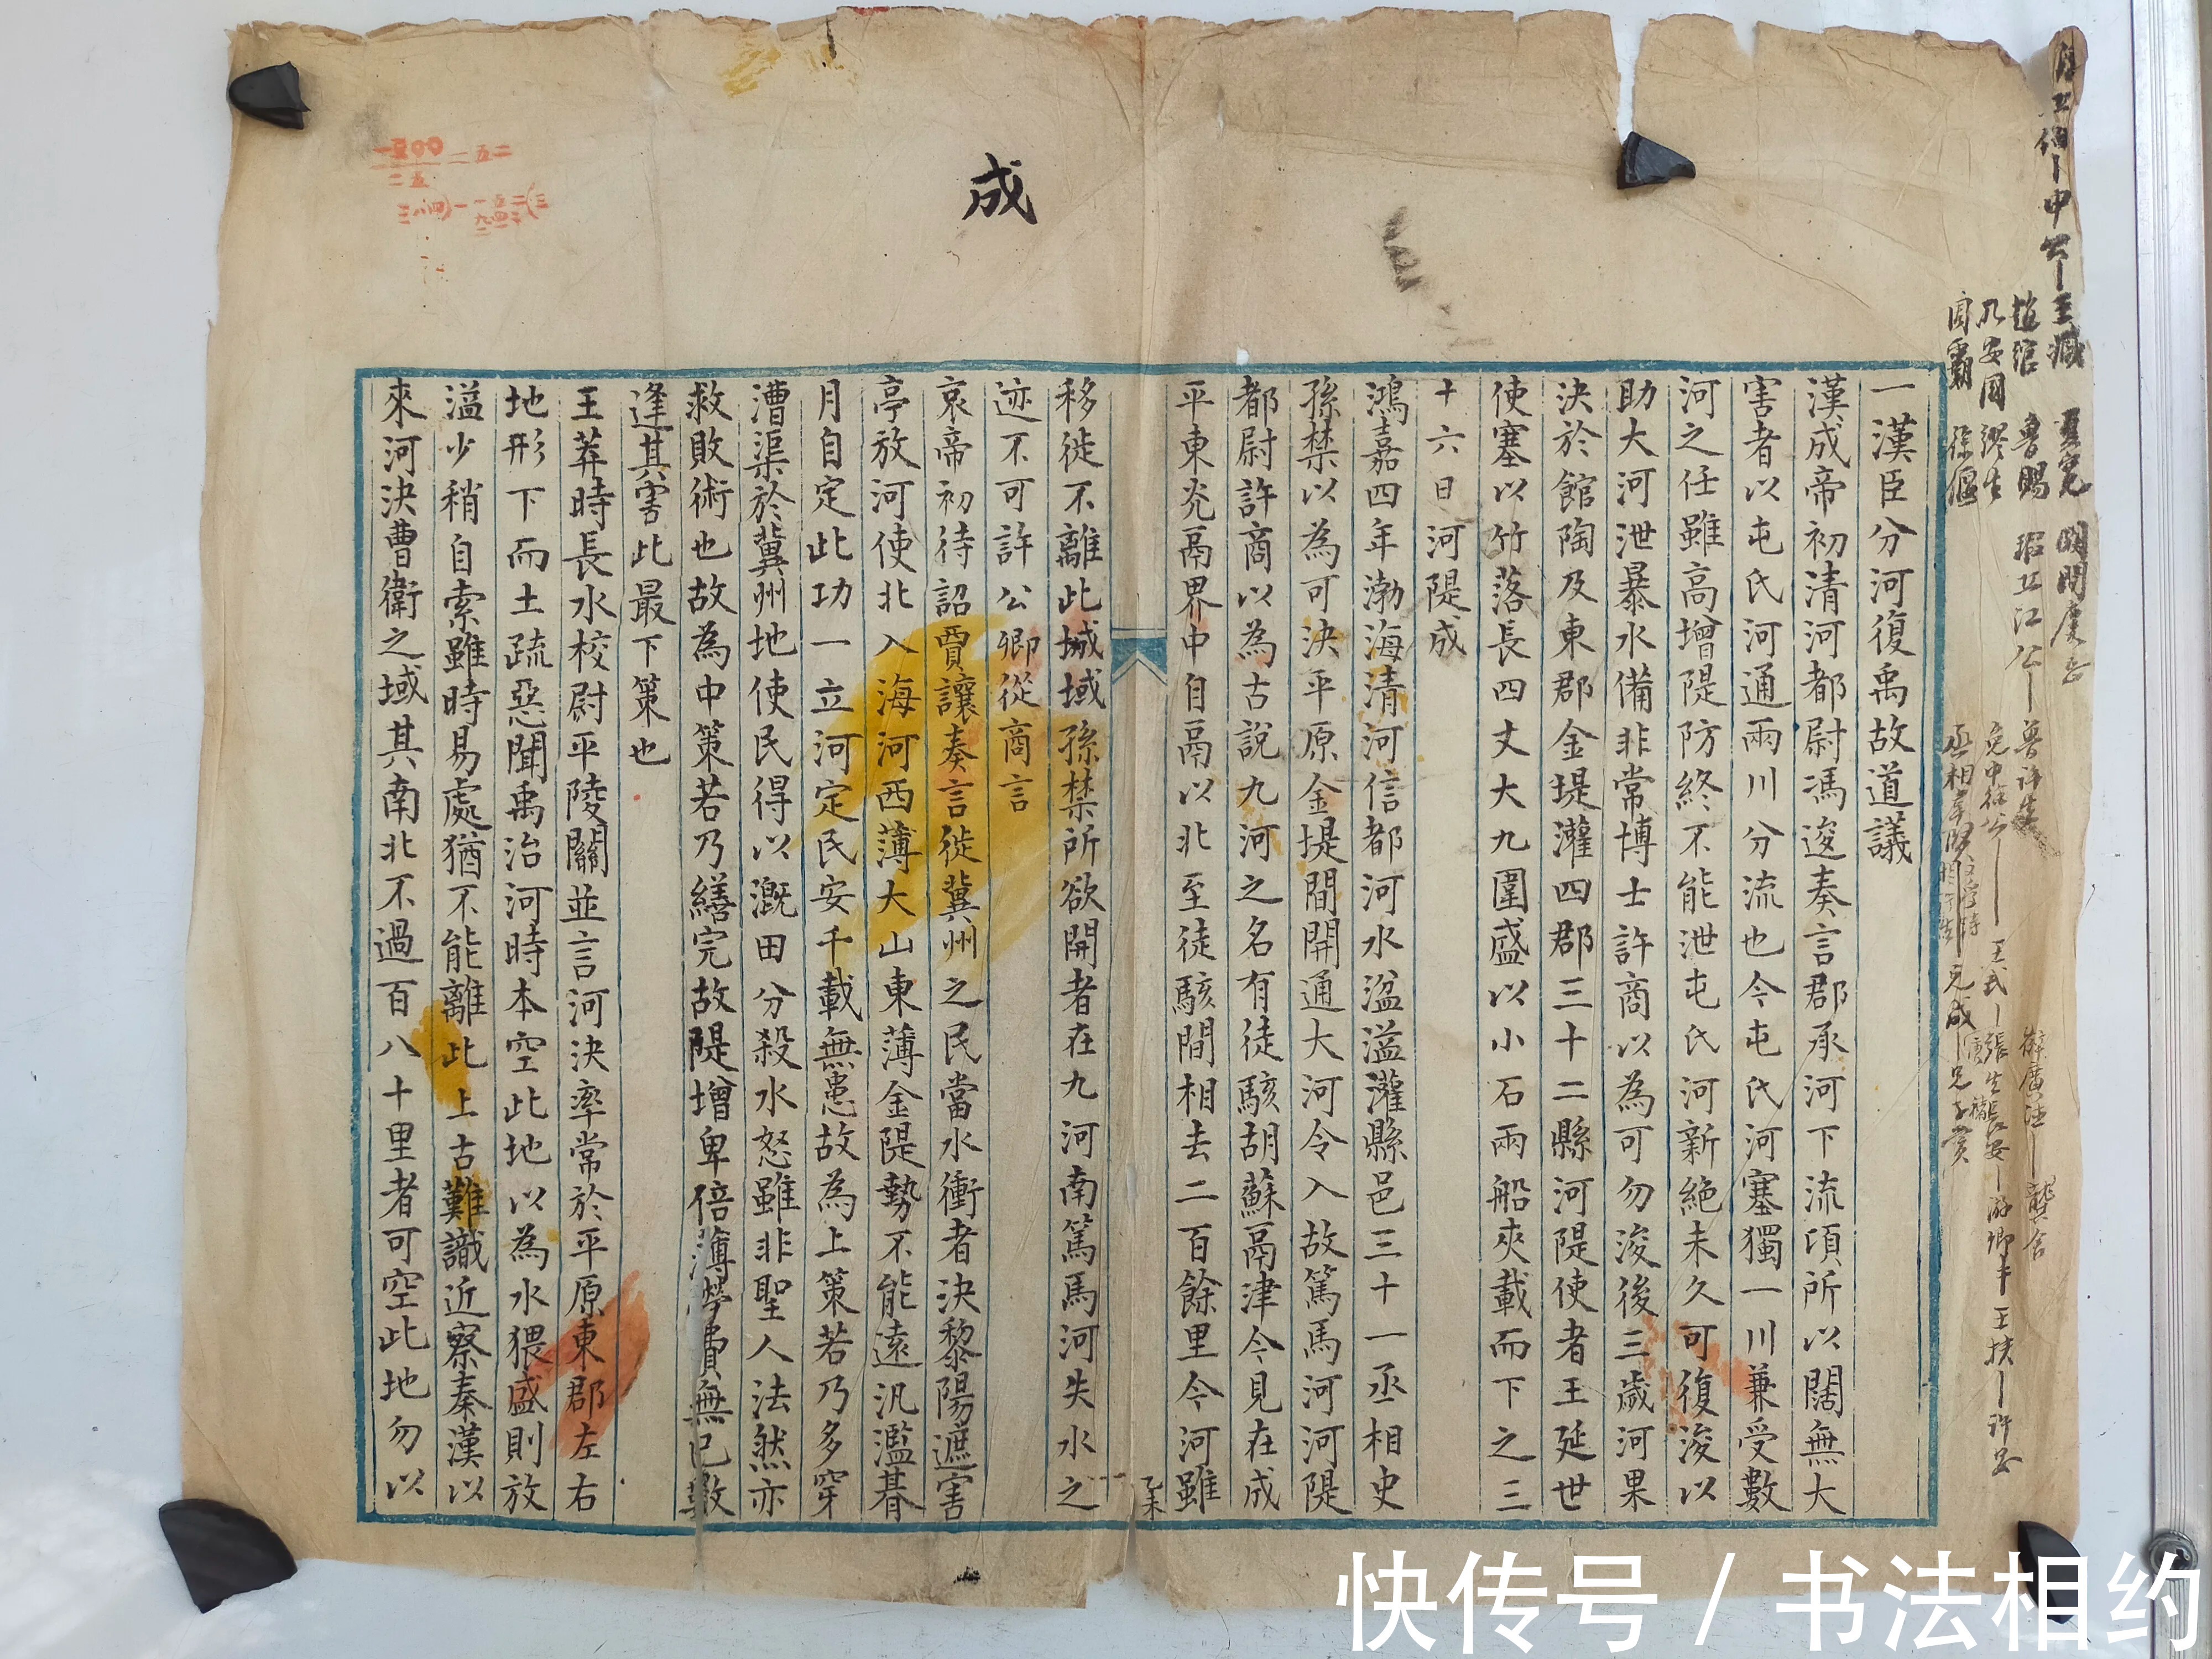 成
一漢臣分河復禹故道議
漢成帝初清河都尉馮逡奏言郡承河下流頃所以闊無大
害者以屯氏河通兩川分流也今屯氏河塞獨一川兼受數
河之任雖高增隄防終不能泄屯氏河新絶未久可復浚以
助大河泄暴水備非常博士許商以為可勿浚後三歲河果
決於館陶及東郡金堤灌四郡三十二縣河隄使者王延世
使塞以竹落長四丈大九圍盛以小石兩船夾載而下之三
十六日河隄成
鴻嘉四年渤海清河信都河水湓溢灌縣邑三十一丞相史
孫禁以為可決平原金堤間開通大河令入故篤馬河河隄
都尉許商以為古說九河之名有徒駭胡蘇鬲津今見在成
平東光鬲界中自鬲以北至徒駭間相去二百餘里今河雖
移徙不離此域孫禁所欲開者在九河南篤馬河失水之
迹不可許公卿從商言
哀帝初待詔賈讓奏言徙冀州之民當水衝者決黎陽遮害
亭放河使北入海河西薄大山東薄金隄勢不能遠汎濫朞
月自定此功一立河定民安千載無患故為上策若乃多穿
漕渠於冀州地使民得以溉田分殺水怒雖非聖人法然亦
救敗術也故為中策若乃繕完故隄增卑倍薄勞費無已數
逢其害此最下策也
王莽時長水校尉平陵關並言河決率常於平原東郡左右
地形下而土疏惡聞禹治河時本空此地以為水猥盛則放
溢少稍自索雖時易處猶不能離此上古難識近察秦漢以
來河決曹衛之域其南北不過百八十里者可空此地勿以
快传号 / 书法相约